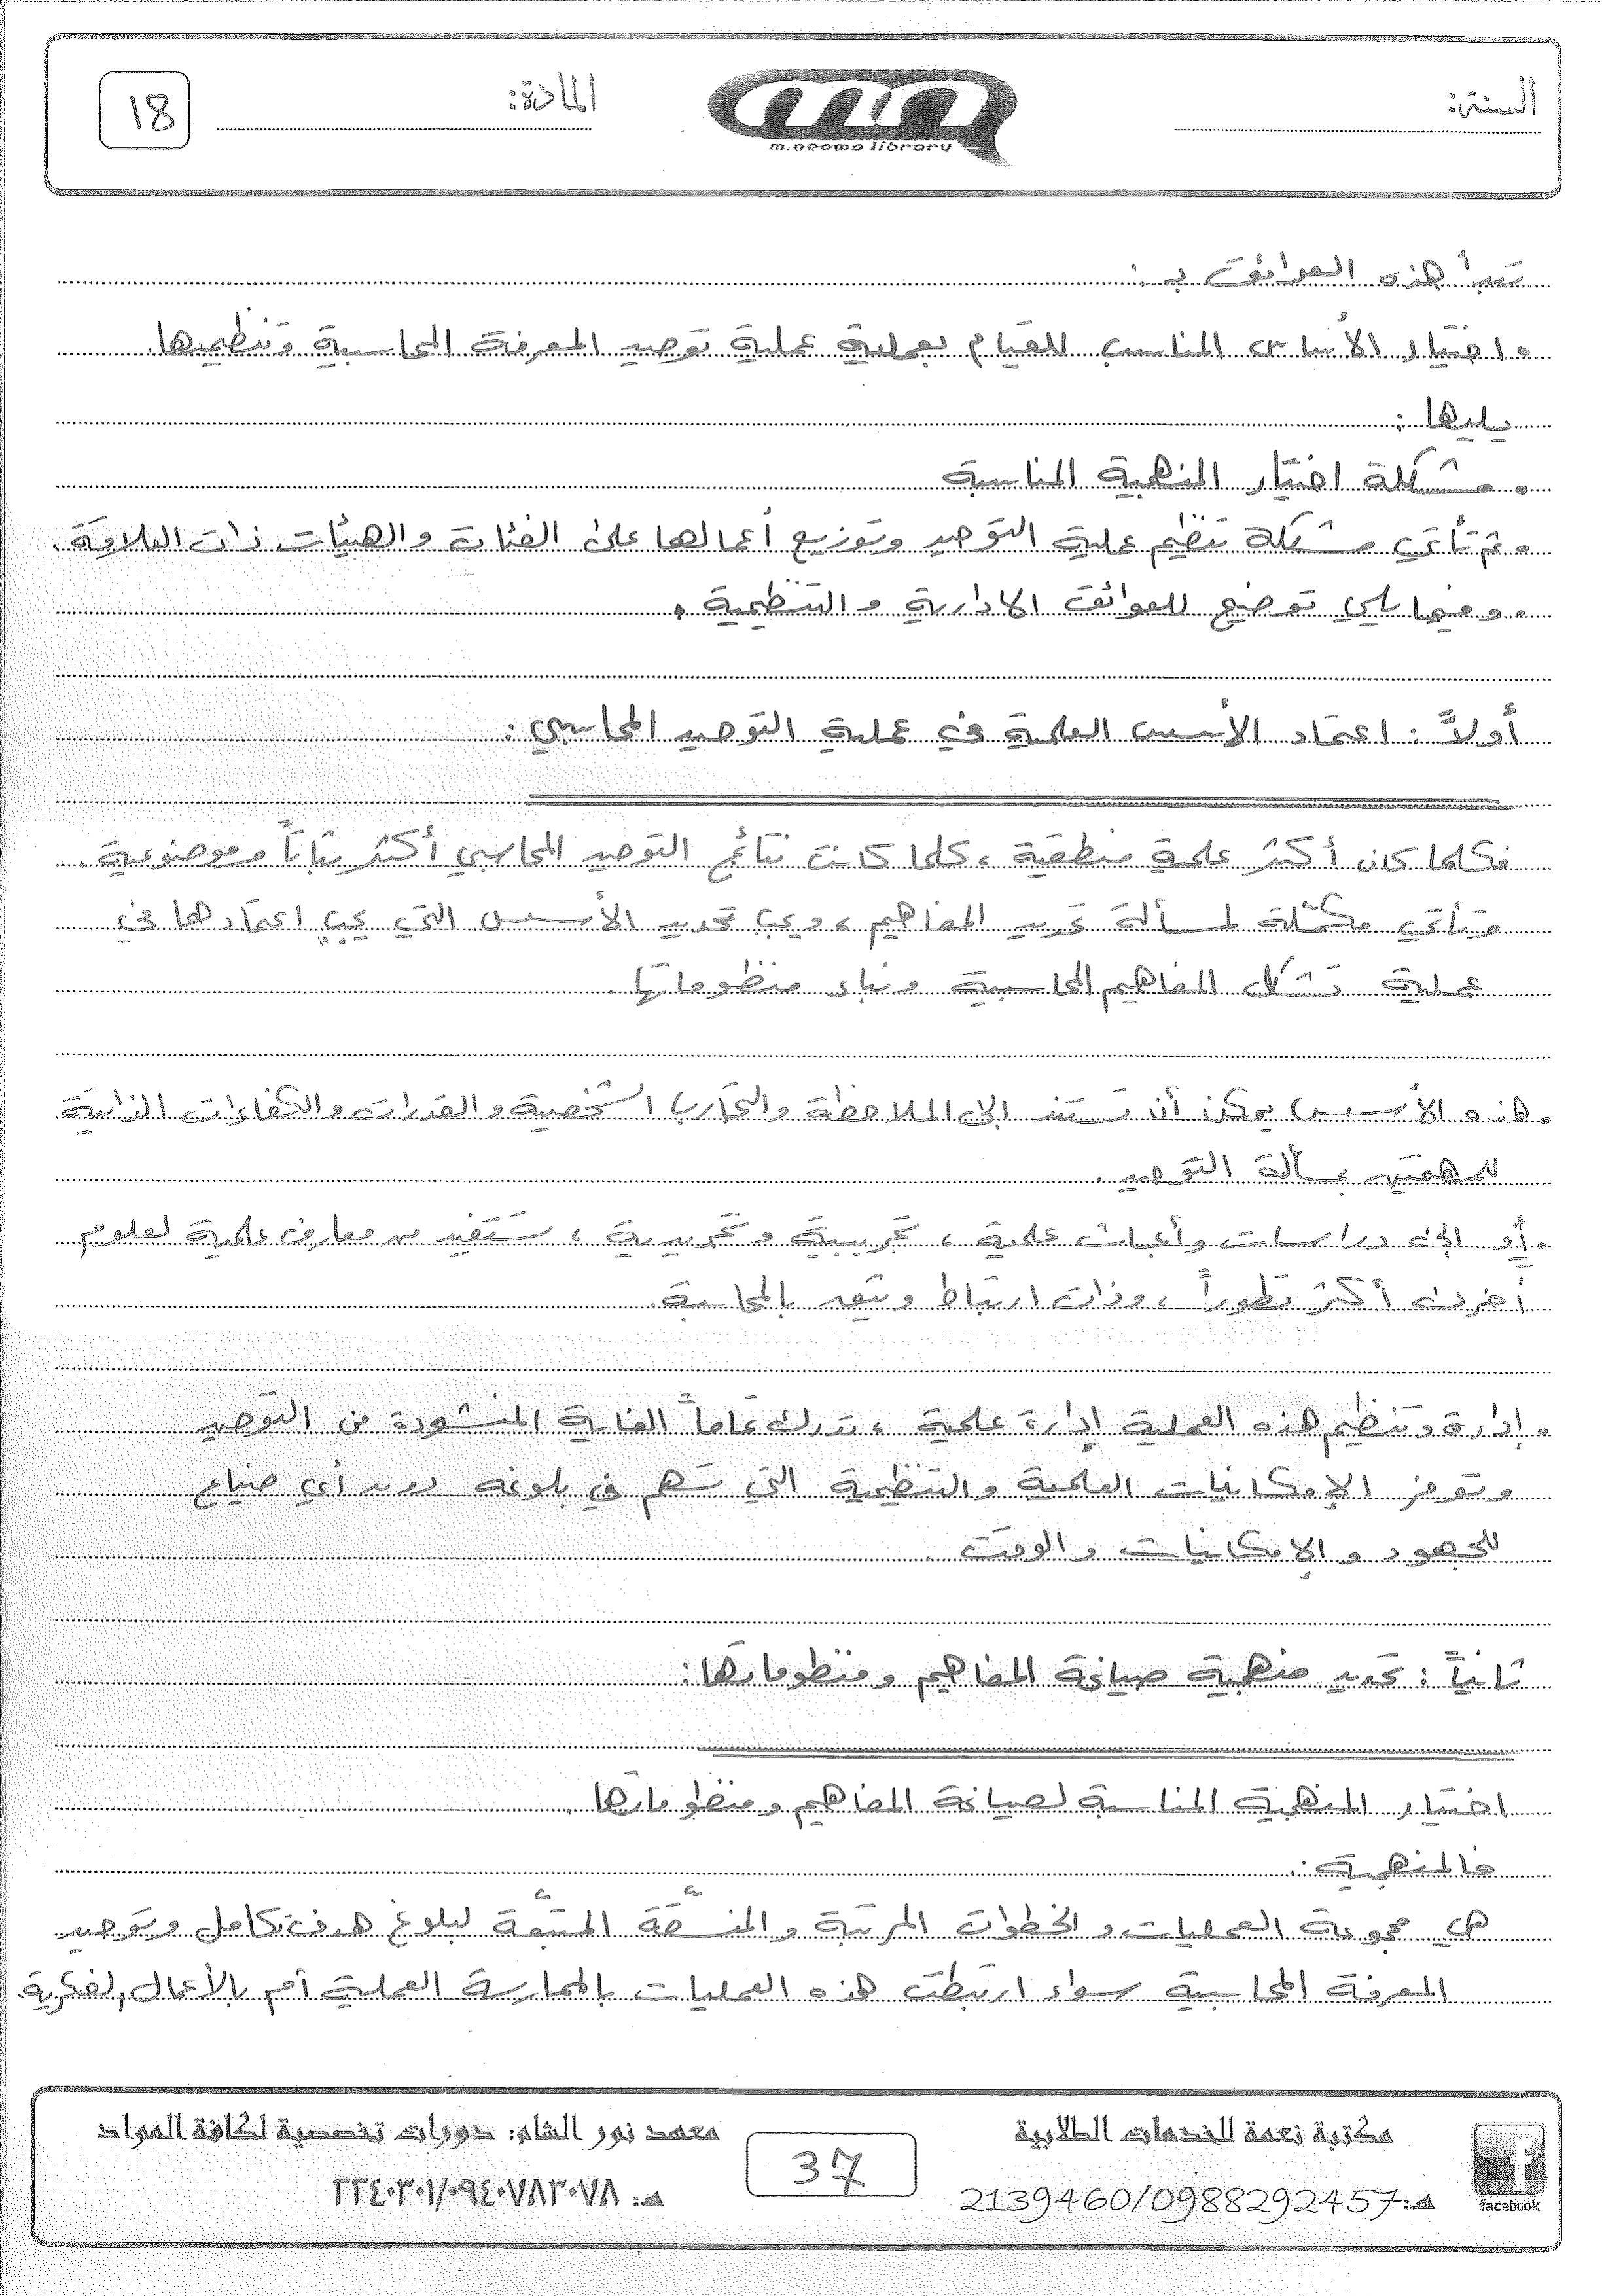 السنة:
المادة:
18
m.neama library
تبدأ هذه العوائق بـ :
• اختيار الأساس المناسب للقيام بعملية عملية توحيد المعرفة المحاسبية وتنظيمها.
يليها :
• مشكلة اختيار المنهجية المناسبة
• ثم تأتي مشكلة تنظيم عملية التوحيد وتوزيع أعمالها على الفئات والهيئات ذات العلاقة.
• وفيما يلي توضيح للعوائق الادارية والتنظيمية .
أولاً : اعتماد الأسس العلمية في عملية التوحيد المحاسبي :
فكلما كان أكثر علمية منطقية ، كلما كانت نتائج التوحيد المحاسبي أكثر ثباتاً وموضوعية .
وتأتي مكمّلة لمسألة تحديد المفاهيم ، ويجب تحديد الأسس التي يجب اعتمادها في
عملية تشكل المفاهيم المحاسبية وبناء منظوماتها .
• هذه الأسس يمكن أن تستند إلى الملاحظة والتجارب الشخصية والقدرات والكفاءات الذاتية
للمهتمين بمسألة التوحيد .
• أو إلى دراسات وأبحاث علمية ، تجريبية وتجريدية ، تستفيد من معارف علمية لعلوم
أخرى أكثر تطوراً ، وذات ارتباط وثيق بالمحاسبة .
• إدارة وتنظيم هذه العملية إدارة علمية ، تدرك تماماً الغاية المنشودة من التوحيد
وتوفر الإمكانيات العلمية والتنظيمية التي تسهم في بلوغه دون أي ضياع
للجهود والإمكانيات والوقت .
ثانياً : تحديد منهجية صياغة المفاهيم ومنظوماتها :
اختيار المنهجية المناسبة لصياغة المفاهيم ومنظوماتها .
فالمنهجية :
هي مجموعة العمليات والخطوات المرتبة والمنسّقة المتّبعة لبلوغ هدف تكامل وتوحيد
المعرفة المحاسبية سواء ارتبطت هذه العمليات بالممارسة العملية أم بالأعمال الفكرية.
مكتبة نعمة للخدمات الطلابية
هـ: 2139460/0988292457
facebook
37
معهد نور الشام: دورات تخصصية لكافة المواد
هـ: ٢٢٤٠٣٠١/٠٩٤٠٧٨٣٠٧٨